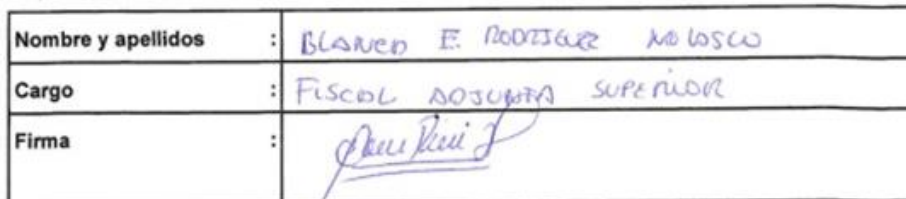 Nombre y apellidos : BLANCO E. RODRIGUEZ
Cargo : FISCAL ADJUNTA SUPERIOR
Firma :